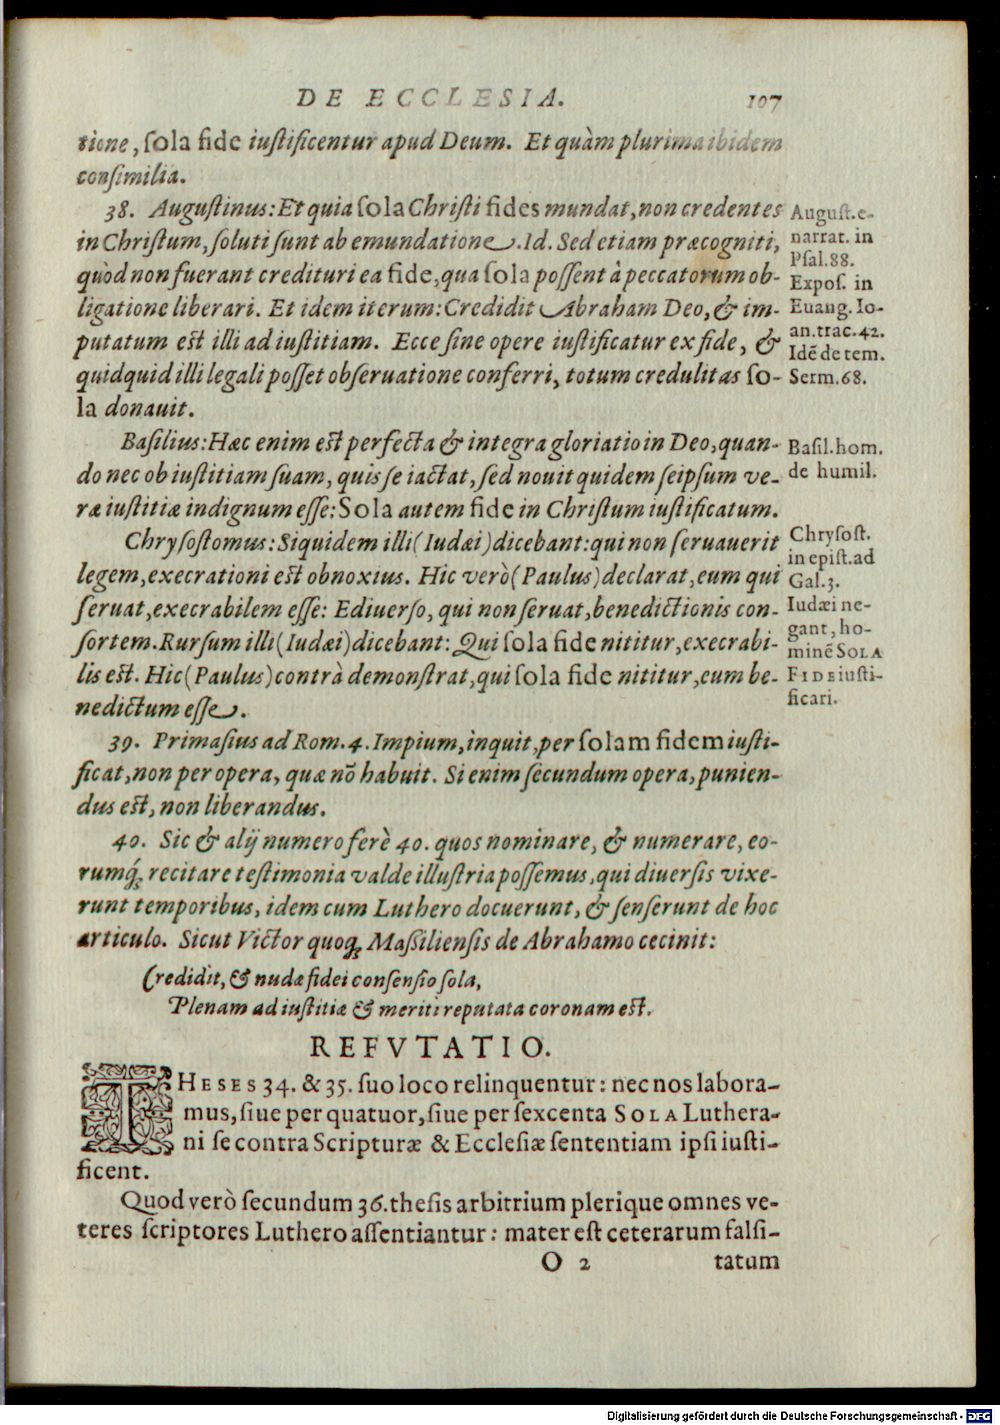 DE ECCLESIA. 107
tione, sola fide iustificentur apud Deum. Et quàm plurima ibidem
consimilia.
38. Augustinus: Et quia sola Christi fides mundat, non credentes
in Christum, soluti sunt ab emundatione. Id. Sed etiam præcogniti,
quòd non fuerant credituri ea fide, qua sola possent à peccatorum ob-
ligatione liberari. Et idem iterum: Credidit Abraham Deo, & im-
putatum est illi ad iustitiam. Ecce sine opere iustificatur ex fide, &
quidquid illi legali posset obseruatione conferri, totum credulitas so-
la donauit.
August. e-
narrat. in
Psal. 88.
Expos. in
Euang. Io-
an. trac. 42.
Idē de tem.
Serm. 68.
Basilius: Hæc enim est perfecta & integra gloriatio in Deo, quan-
do nec ob iustitiam suam, quis se iactat, sed nouit quidem seipsum ve-
ræ iustitiæ indignum esse: Sola autem fide in Christum iustificatum.
Basil. hom.
de humil.
Chrysostomus: Siquidem illi (Iudæi) dicebant: qui non seruauerit
legem, execrationi est obnoxius. Hic verò (Paulus) declarat, eum qui
seruat, execrabilem esse: Ediuerso, qui non seruat, benedictionis con-
sortem. Rursum illi (Iudæi) dicebant: Qui sola fide nititur, execrabi-
lis est. Hic (Paulus) contrà demonstrat, qui sola fide nititur, eum be-
nedictum esse.
Chrysost.
in epist. ad
Gal. 3.
Iudæi ne-
gant, ho-
minē SOLA
FIDE iusti-
ficari.
39. Primasius ad Rom. 4. Impium, inquit, per solam fidem iusti-
ficat, non per opera, quæ nō habuit. Si enim secundum opera, punien-
dus est, non liberandus.
40. Sic & alij numero ferè 40. quos nominare, & numerare, eo-
rumq́; recitare testimonia valde illustria possemus, qui diuersis vixe-
runt temporibus, idem cum Luthero docuerunt, & senserunt de hoc
articulo. Sicut Victor quoq; Massiliensis de Abrahamo cecinit:
Credidit, & nudæ fidei consensio sola,
Plenam ad iustitiæ & meriti reputata coronam est.
REFVTATIO.
THESES 34. & 35. suo loco relinquentur: nec nos labora-
mus, siue per quatuor, siue per sexcenta SOLA Luthera-
ni se contra Scripturæ & Ecclesiæ sententiam ipsi iusti-
ficent.
Quod verò secundum 36. thesis arbitrium plerique omnes ve-
teres scriptores Luthero assentiantur: mater est ceterarum falsi-
O 2 tatum
Digitalisierung gefördert durch die Deutsche Forschungsgemeinschaft - DFG